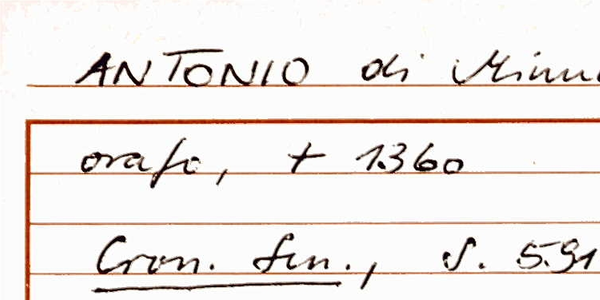 ANTONIO di Minu
orafo, + 1360
Cron. Sen., S. 591